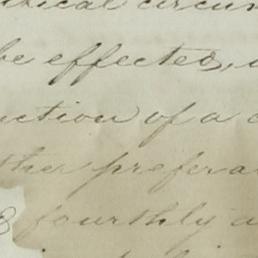 circum
be effected,
ction of a
ther prefera
fourthly a